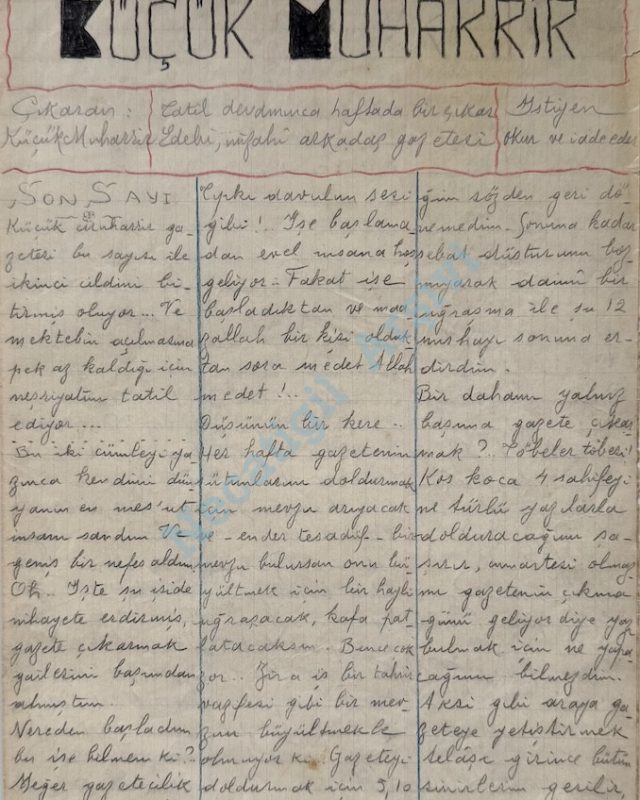 KÜÇÜK MUHARRİR
Çıkaran:
Küçük Muharrir
Tatil devamınca haftada bir çıkar
Edebi, mizahi arkadaş gazetesi
İstiyen
okur ve iade eder
SON SAYI
Küçük muharrir ga-
zetesi bu sayısı ile
ikinci cildini bi-
tirmiş oluyor... Ve
mektebin açılmasına
pek az kaldığı için
neşriyatını tatil
ediyor...
Bu iki cümleyi ya-
zınca kendimi dün-
yanın en mes'ut
insanı sandım. Ve
geniş bir nefes aldım
Oh.. İşte şu işide
nihayete erdirmiş,
gazete çıkarmak
gailesini başımdan
atmıştım.
Nereden başladım
bu işe bilmem ki?
Meğer gazetecilik
Tıpkı davulun sesi
gibi!.. İşe başlama
dan evel insana hoş
geliyor.. Fakat işe
başladıktan ve maa
zallah bir kişi olduk
tan sora medet Allah
medet!..
Düşünün bir kere..
Her hafta gazetenin
sütunlarını doldurmak
için mevzu arıyacak
ve - ender tesadüf - bir
mevzu bulursan onu bü
yültmek için bir hayli
uğraşacak, kafa pat-
latacaksın. Bence çok
zor.. Zira iş bir tahrir
vazifesi gibi bir mev-
zuu büyültmekle
olmuyor ki. Gazeteyi
doldurmak için 5, 10
ğim sözden geri dö-
nemedim. Sonuna kadar
sebat düsturunu boz
mıyarak daimî bir
uğraşma ile şu 12
nushayı sonuna er-
dirdim.
Bir dahamı yalnız
başıma gazete çıkar
mak?.. Töbeler töbesi!
Kos koca 4 sahifeyi
ne türlü yazılarla
dolduracağımı şa-
şırır, cumartesi olmaz
mı gazetenin çıkma
günü geliyor diye yazı
bulmak için ne yapa
cağımı bilmezdim.
Aksi gibi araya ga-
zeteye yetiştirmek
telâşı girince bütün
sinirlerim gerilir,
Necatigil